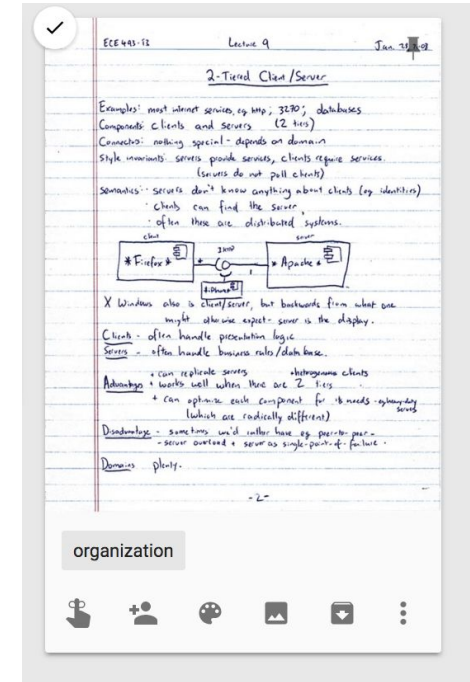 ECE 493-T2 Lecture 9 Jan.
2-Tiered Client/Server
Examples: most internet services, eg http; 3270; databases
Components: clients and servers (2 tiers)
Connectors: nothing special - depends on domain
Style invariants: servers provide services, clients require services.
(servers do not poll clients)
semantics: - servers don't know anything about clients (eg identities)
- clients can find the server,
- often these are distributed systems.
client server
* Firefox * * Apache *
X Windows also is client/server, but backwards from what one
might otherwise expect - server is the display.
Clients - often handle presentation logic
Servers - often handle business rules/database.
+ can replicate servers clients
Advantages + works well when there are 2 tiers
+ can optimize each component for its needs
(which are radically different)
Disadvantage - sometimes we'd rather have eg peer-to-peer -
- server overload + server as single-point-of-failure.
Domains plenty.
-2-
organization